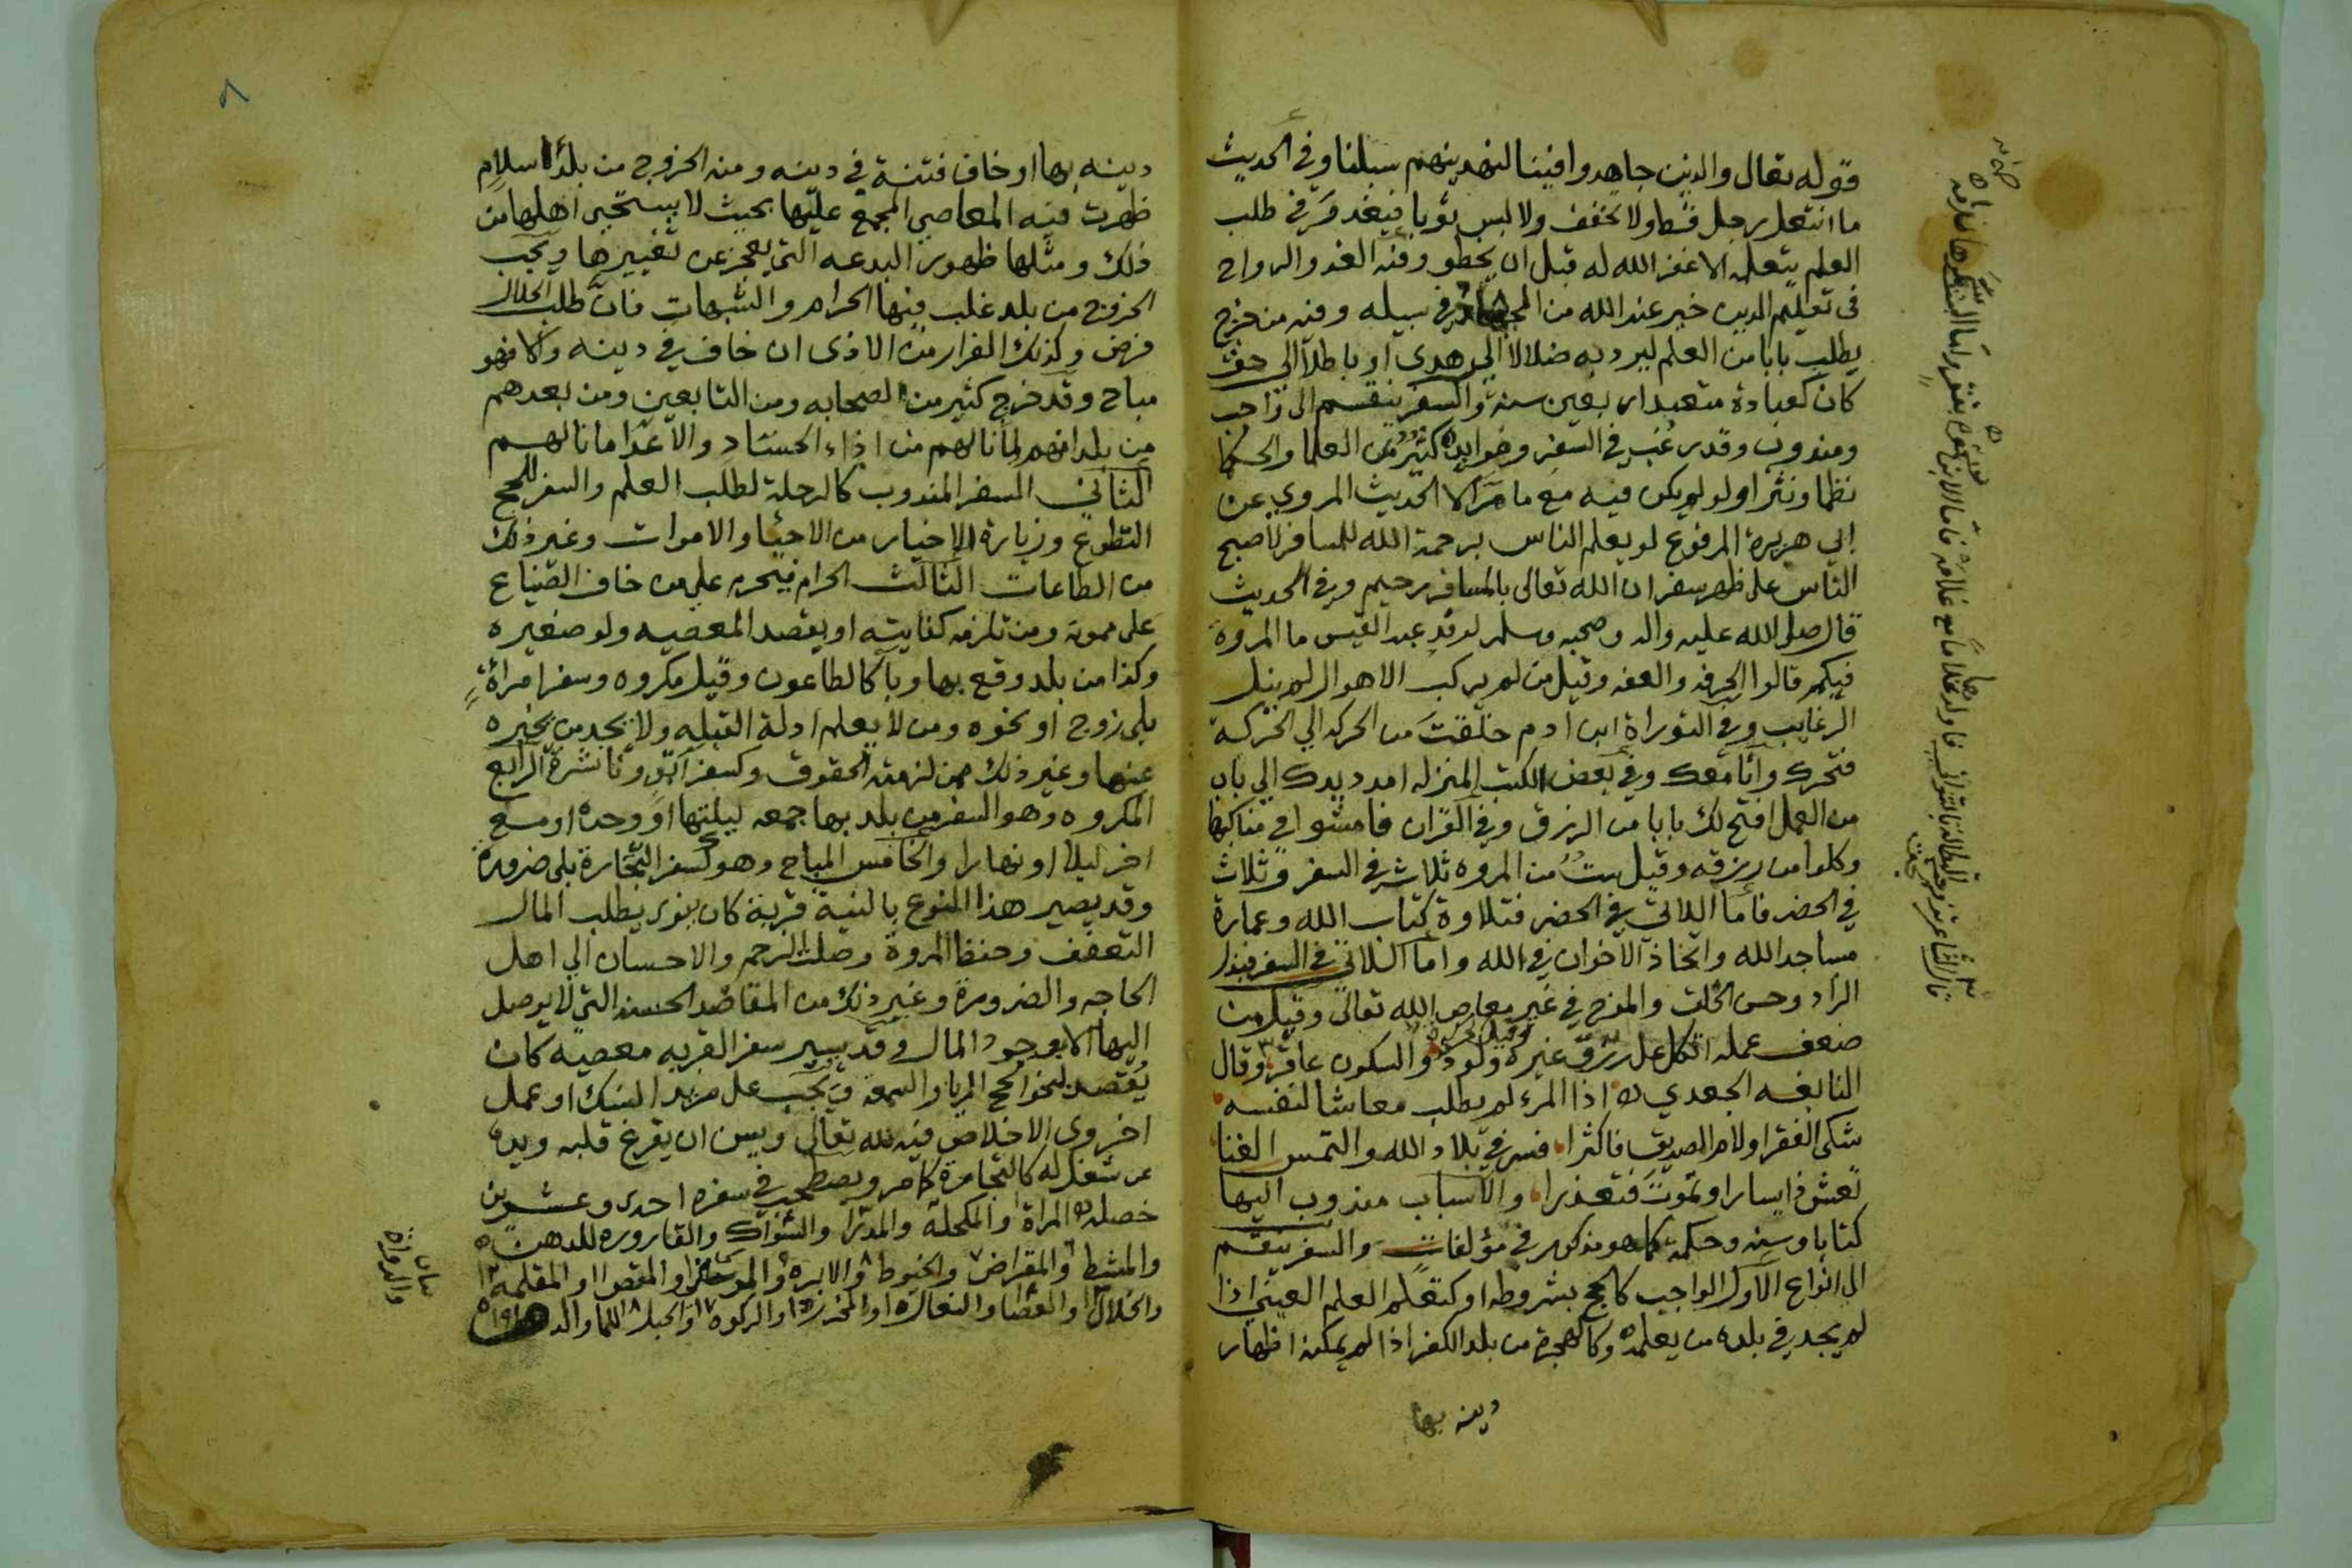 قوله تعالى والذين جاهدوا فينا لنهدينهم سبلنا وفي الحديث
ما انتعل رجل قط ولا تخفف ولا لبس ثوبا فيغدو في طلب
العلم يتعلمه الا غفر الله له قبل ان يخطو وفيه الغدو والرواح
في تعليم الدين خير عند الله من الجهاد في سبيله وفيه من خرج
يطلب بابا من العلم ليرد به ضلالا الى هدى او باطلا الى حق
كان كعبادة متعبد اربعين سنة والسفر ينقسم الى واجب
ومندوب وقد رغب في السفر وفوايده كثير من العلما والحكما
نظما ونثرا ولو لم يكن فيه مع ما مر الا الحديث المروي عن
ابي هريرة المرفوع لو يعلم الناس برحمة الله للمسافر لاصبح
الناس على ظهر سفر ان الله تعالى بالمسافر رحيم وفي الحديث
قال صلى الله عليه واله وصحبه وسلم لوفد عبد القيس ما المروة
فيكم قالوا الحرفه والعفه وقيل من لم يركب الاهوال لم ينل
الرغايب وفي التوراة ابن ادم خلقت من الحركه الى الحركة
فتحرك وانا معك وفي بعض الكتب المنزله امدد يدك الى باب
من العمل افتح لك بابا من الرزق وفي القران فامشوا في مناكبها
وكلوا من رزقه وقيل ست من المروه ثلاث في السفر وثلاث
في الحضر فاما اللاتي في الحضر فتلاوة كتاب الله وعمارة
مساجد الله واتخاذ الاخوان في الله واما اللاتي في السفر فبذل
الزاد وحسن الخلق والمزح في غير معاصي الله تعالى وقيل من
ضعف عمله اتكل على رزق غيره ولود والسكون عاقر وقال
النابغه الجعدي اذا المرء لم يطلب معاشا لنفسه
شكى الفقر او لام الصديق فاكثرا فسر في بلاد الله والتمس الغنا
تعش ذا يسار او تموت فتعذرا والاسباب مندوب اليها
كتابا وسنه وحكمة كما هو مذكور في مؤلفات والسفر ينقسم
الى انواع الاول الواجب كالحج بشروطه او كتعلم العلم العيني اذا
لم يجد في بلده من يعلمه وكالهجرة من بلد الكفر اذا لم يمكنه اظهار
دينه بها
٨
دينه بها او خاف فتنة في دينه ومنه الخروج من بلد اسلام
ظهرت فيه المعاصي المجمع عليها بحيث لا يستحيي اهلها من
ذلك ومثلها ظهور البدعه التي يعجز عن تغييرها ويجب
الخروج من بلد غلب فيها الحرام والشبهات فان طلب الحلال
فرض وكذلك الفرار من الاذى ان خاف في دينه والا فهو
مباح وقد خرج كثير من الصحابه ومن التابعين ومن بعدهم
من بلدانهم لما نالهم من اذاء الحساد والاعدا ما نالهم
الثاني السفر المندوب كالرحلة لطلب العلم والسفر للحج
التطوع وزيارة الاخيار من الاحيا والاموات وغير ذلك
من الطاعات الثالث الحرام فيحرم على من خاف الضياع
على ممونه ومن تلزمه كفايته او يقصد المعصيه ولو صغيره
وكذا من بلد وقع بها وبا كالطاعون وقيل مكروه وسفر امراة
بلى زوج او نحوه ومن لا يعلم ادلة القبله ولا يجد من يخبره
عنها وغير ذلك ممن لزمته الحقوق وكسفر آبق وناشزة الرابع
المكروه وهو السفر من بلد بها جمعه ليلتها او وحده او مع
اخر ليلا او نهارا والخامس المباح وهو كسفر التجارة بلى ضرورة
وقد يصير هذا النوع بالنية قربة كان ينوي بطلب المال
التعفف وحفظ المروة وصلت الرحم والاحسان الى اهل
الحاجه والضرورة وغير ذلك من المقاصد الحسنه التي لا يوصل
اليها الا بوجود المال وقد يصير سفر القربه معصيه كان
يقصد بنحو الحج الريا والسمعة ويجب على مريد النسك او عمل
اخروي الاخلاص فيه لله تعالى ويسن ان يفرغ قلبه ويده
عن شغل له كالتجارة كما مر ويصطحب في سفره احدى وعشرين
خصلة المراة والمكحلة والمدرا والسواك والقاروره للدهن
والمشط والمقراض والخيوط والابره والموسى والمقص والمقلمة
والخلال والعصا والنعال والركوه والحبل للما
والدواة